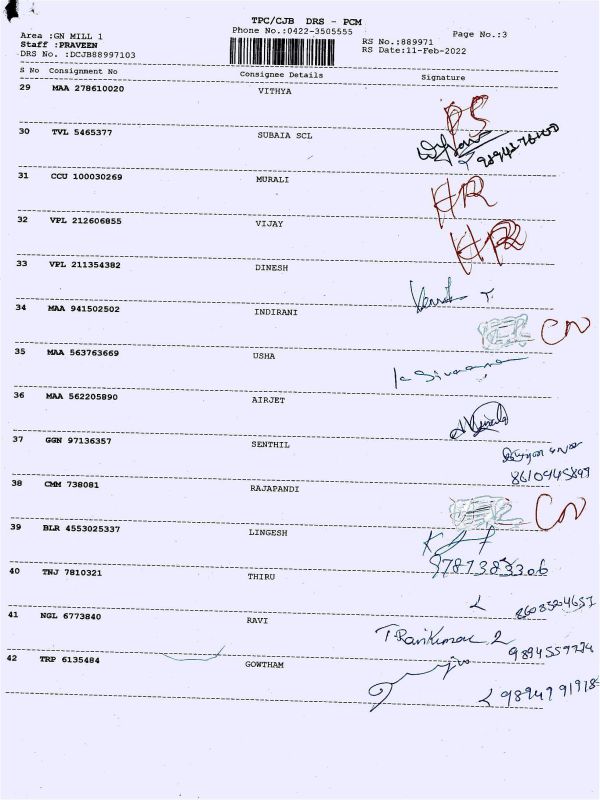 TPC/CJB DRS - PCM
Phone No.:0422-3505555
Page No.:3
Area :GN MILL 1
RS No.:889971
Staff :PRAVEEN
RS Date:11-Feb-2022
DRS No. :DCJB88997103
S No Consignment No Consignee Details Signature
29 MAA 278610020 VITHYA
30 TVL 5465377 SUBAIA SCL
31 CCU 100030269 MURALI
32 VPL 212606855 VIJAY
33 VPL 211354382 DINESH
34 MAA 941502502 INDIRANI
CN
35 MAA 563763669 USHA
36 MAA 562205890 AIRJET
37 GGN 97136357 SENTHIL
38 CMM 738081 RAJAPANDI
CN
39 BLR 4553025337 LINGESH
40 TNJ 7810321 THIRU
41 NGL 6773840 RAVI
T.Ravikumar
42 TRP 6135484 GOWTHAM